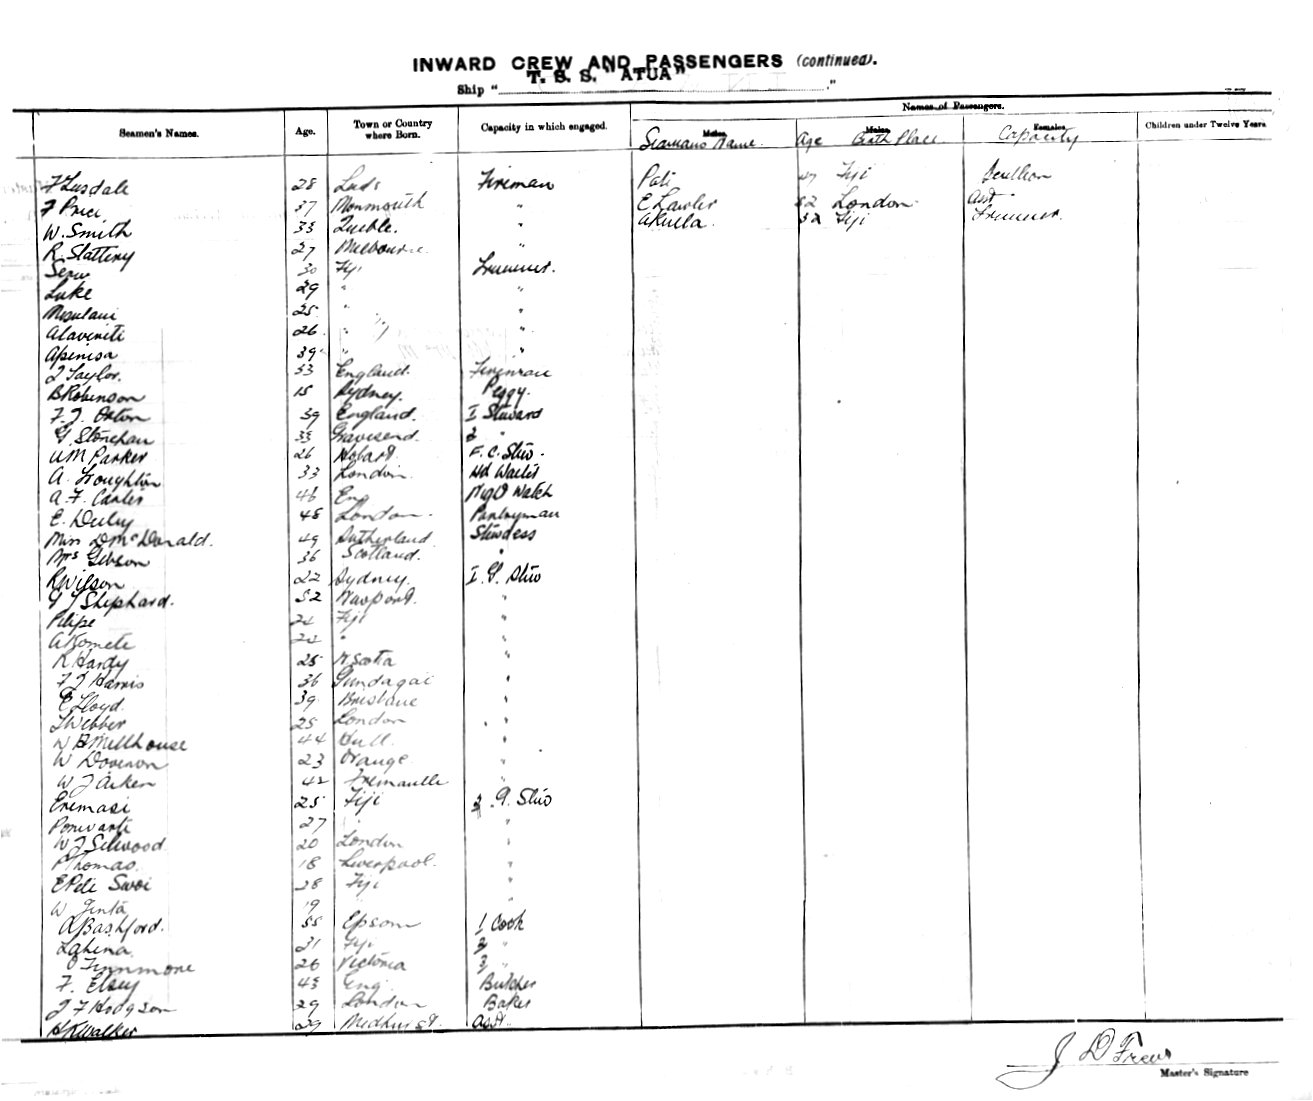 INWARD CREW AND PASSENGERS (continued).
Ship "T. S. S. "ATUA""
Names of Passengers.
Seamen's Names. Age. Town or Country where Born. Capacity in which engaged. Males. Males. Females. Children under Twelve Years
Seamans Name. Age Birth Place. Capacity
28 Leeds Fireman Pati 47 Fiji Scullion
F Price 37 Monmouth " E Lawler 52 London Asst
W. Smith 33 " Akuila. 32 Fiji Trimmer.
R. Slattery 27 Melbourne "
Seru 30 Fiji Trimmer.
Luke 29 " "
25 " "
Alavineti 26 " "
Apenisa 39 " "
J Taylor. 33 England. Fireman
B Robinson 15 Sydney. Peggy.
F. J. Oxton 39 England. I Steward
G. Stonehan 33 Gravesend. 2 "
W M Parker 26 Hobart. F. C. Stwd.
A. Troughton 33 London. Hd Waiter
A F. Carter 46 Eng Night Watch
E. 48 London. Pantryman
Miss D McDonald. 49 Sutherland. Stwdess
Mrs Gibson 36 Scotland. "
R Wilson 22 Sydney. I. G. Stwd
G J Shephard. 52 Newport. "
Pilipe 24 Fiji "
A Komete 24 " "
R Hardy 25 N Scotia "
F J Harris 36 Gundagai "
E Lloyd. 39 Brisbane "
J Webber 25 London "
W H Millhouse 44 Hull. "
W 23 Orange "
W J Aiken 42 Fremantle "
Eremasi 25 Fiji 2 G. Stwd
27 "
W J Silwood 20 London "
P Thomas. 18 Liverpool. "
E Peli Swoi 28 Fiji "
W 19 "
A Bashford. 55 Epsom 1 Cook
31 Fiji 2 "
26 Victoria 3 "
F. Elsey 43 Eng. Butcher
J F Hodgson 29 London Baker
H R Walker 29 Midhurst. Asst.
J D Frew
Master's Signature